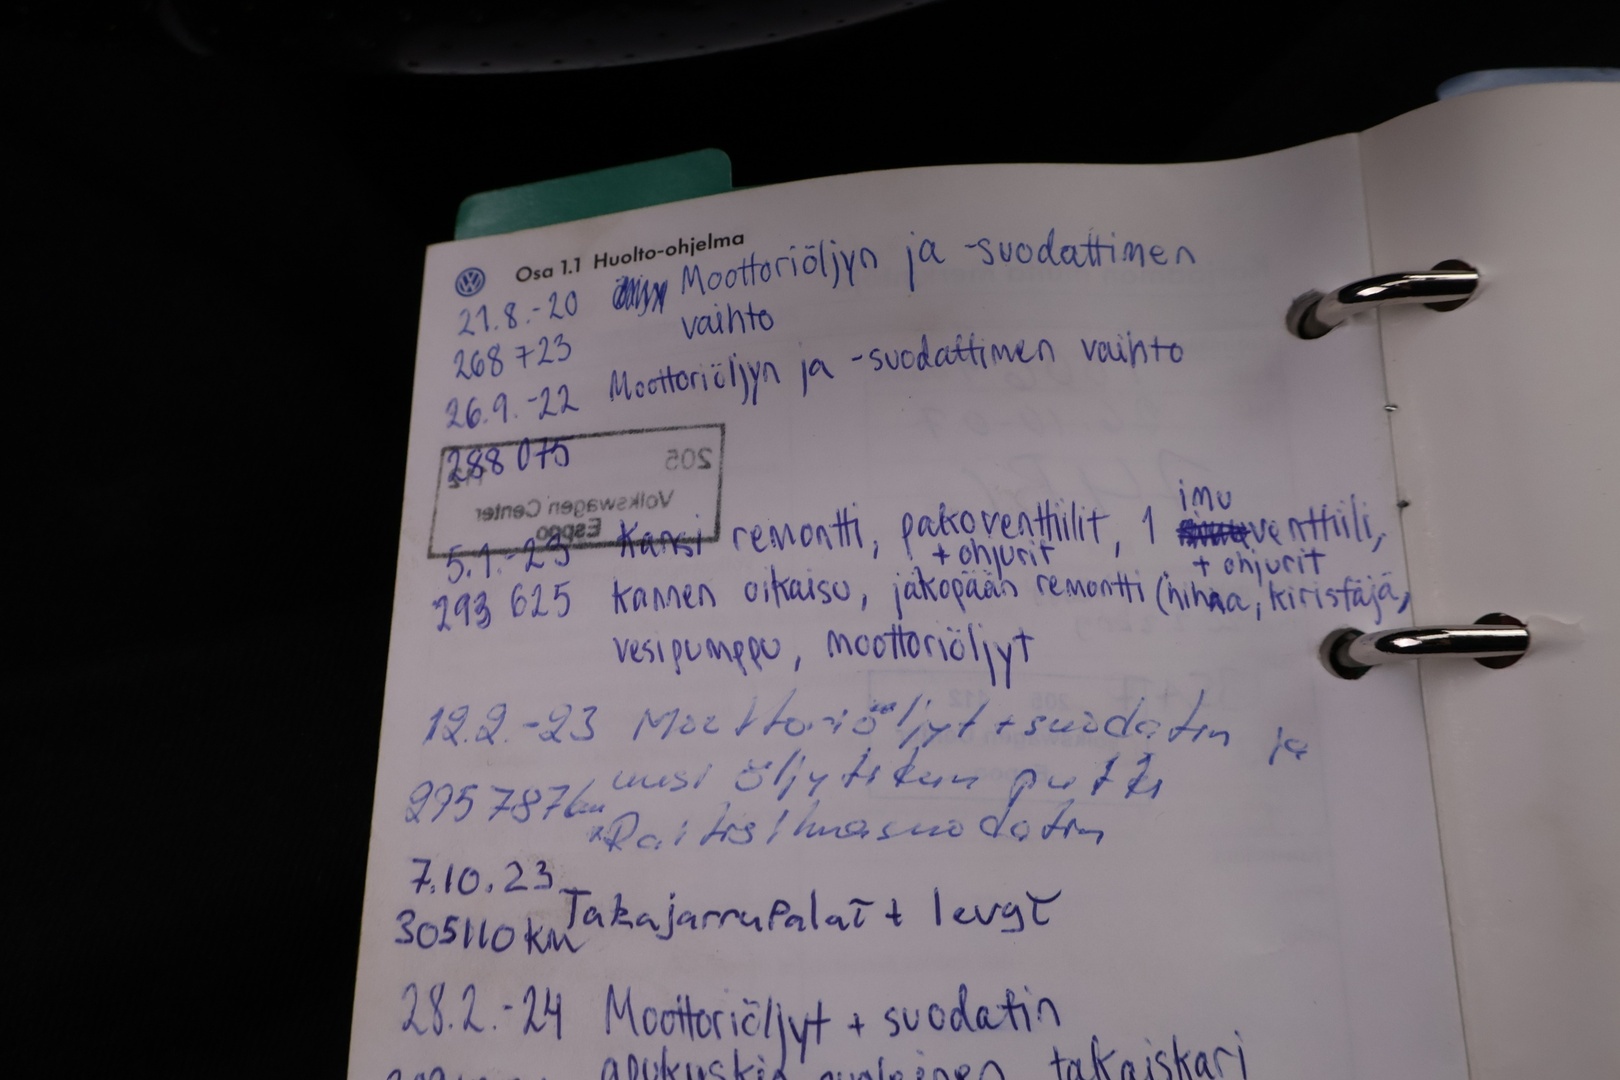 Osa 1.1 Huolto-ohjelma
21.8.-20 Moottoriöljyn ja -suodattimen
268 723 vaihto
26.9.-22 Moottoriöljyn ja -suodattimen vaihto
288 075
205
Volkswagen Center
Espoo
imu
5.1.-23 Kansi remontti, pakoventtiilit, 1 venttiili,
+ ohjurit + ohjurit
293 625 kannen oikaisu, jakopään remontti (hihna, kiristäjä,
vesipumppu, moottoriöljyt
12.2.-23 Moottoriöljyt + suodatin ja
295 787km uusi öljytikun putki
*Raitisilmasuodatin
7.10.23
305110 km Takajarrupalat + levyt
28.2.-24 Moottoriöljyt + suodatin
apukuskin puoleinen takaiskari